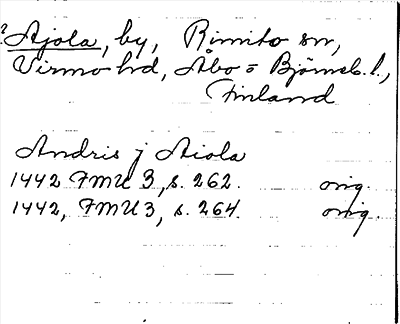 ? Ajola, by, Rimito sn,
Virmo hd, Åbo o Björneb. l.,
Finland
Andris j Aiola
1442 FMU 3, s. 262. orig.
1442, FMU 3, s. 264. orig.